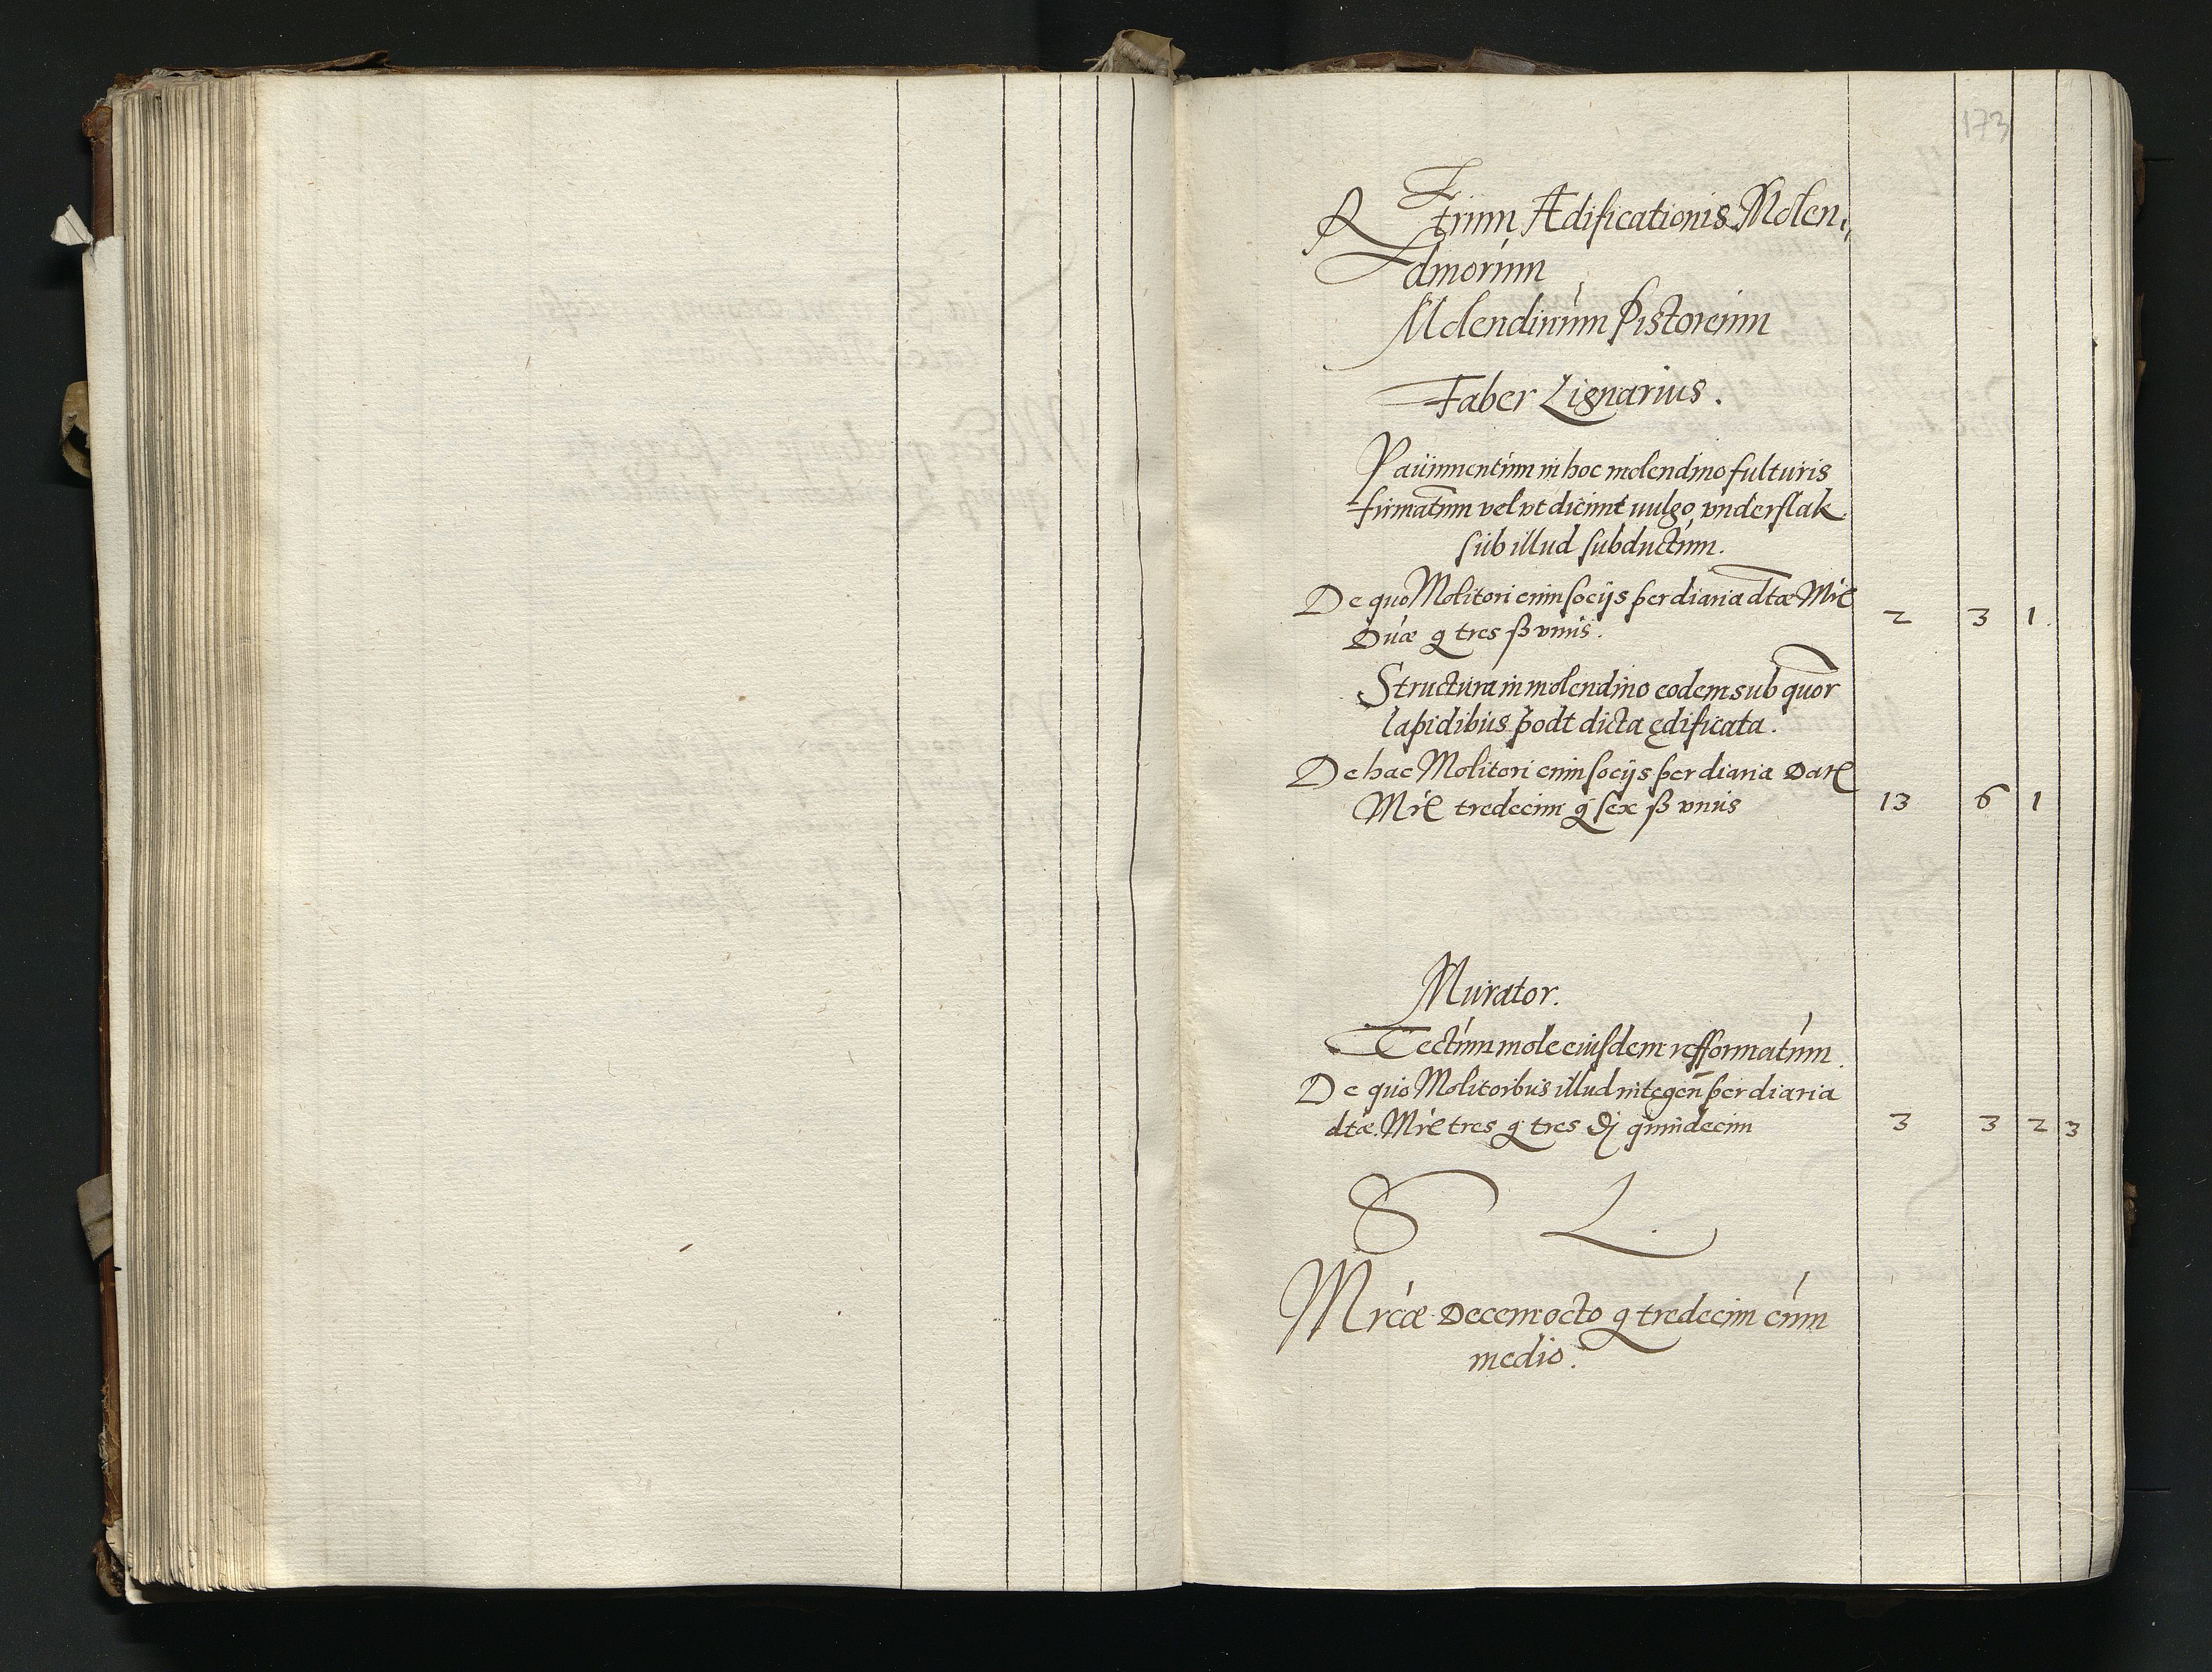 173
R Etrum Ædificationis Molen,,
dinorum
Molendinum Pistorum
Faber Lignarius.
Pauimentum in hoc molendino fulturis
firmatum vel vt dicunt uulgo vnderslak
sub illud subductum.
De quo Molitori cum socijs per diaria dtæ Mrc 2 3 1
Duæ g tres ß vnus.
Structura in molendino eodem sub quor
lapidibus podt dicta ędificata.
De hac Molitori cum socijs per diaria Datę
Mrc tredecim g sex ß vnus 13 6 1
Murator.
Tectum mole eiusdem refformatum.
De quo Molitoribus illud integen per diaria
dtæ. Mrc tres g tres quindecim 3 3 2 3
S L.
Mrcæ Decem octo g tredecim cum
medio.